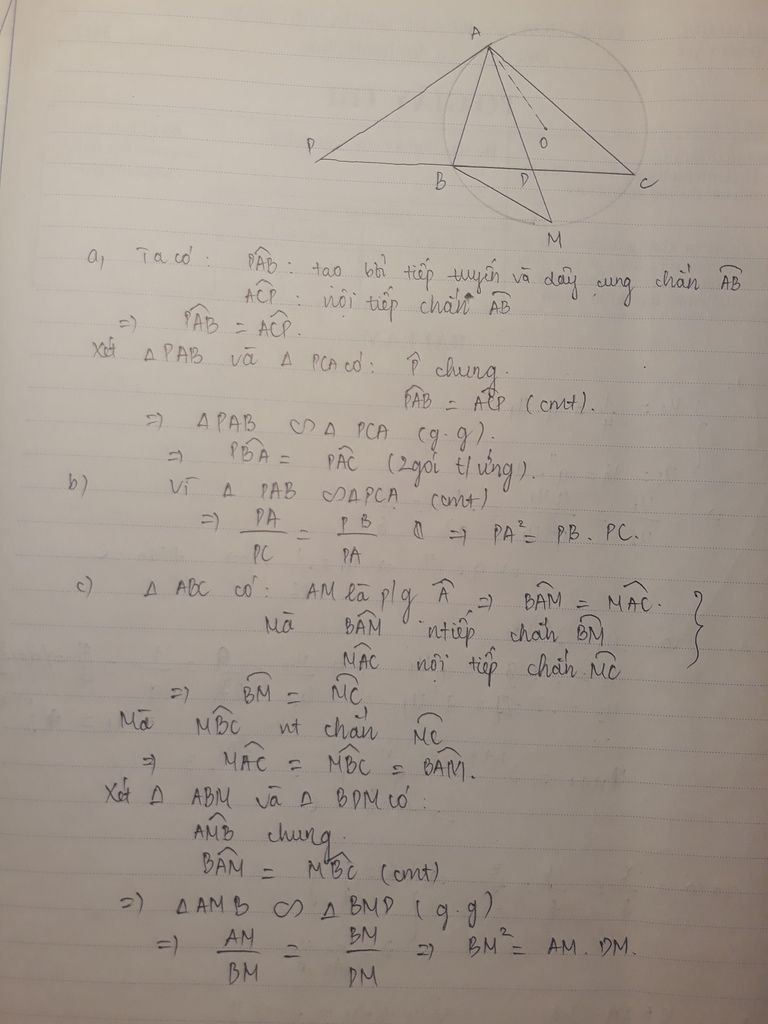 A
P
B
D
O
C
M
a, Ta có: \(\widehat{PAB}\) : tạo bởi tiếp tuyến và dây cung chắn \(\overset{\frown}{AB}\)
\(\widehat{ACP}\) : nội tiếp chắn \(\overset{\frown}{AB}\)
=> \(\widehat{PAB}\) = \(\widehat{ACP}\).
Xét Δ PAB và Δ PCA có: \(\widehat{P}\) chung.
\(\widehat{PAB}\) = \(\widehat{ACP}\) (cmt).
=> Δ PAB ∽ Δ PCA (g.g).
=> \(\widehat{PBA}\) = \(\widehat{PAC}\) (2 góc t/ứng).
b) Vì Δ PAB ∽ Δ PCA (cmt)
=> \(\frac{PA}{PC}\) = \(\frac{PB}{PA}\) => PA² = PB. PC.
c) Δ ABC có: AM là p/g \(\widehat{A}\) => \(\widehat{BAM}\) = \(\widehat{MAC}\).
Mà \(\widehat{BAM}\) ntiếp chắn \(\overset{\frown}{BM}\)
\(\widehat{MAC}\) nội tiếp chắn \(\overset{\frown}{MC}\)
=> \(\overset{\frown}{BM}\) = \(\overset{\frown}{MC}\)
Mà \(\widehat{MBC}\) nt chắn \(\overset{\frown}{MC}\)
=> \(\widehat{MAC}\) = \(\widehat{MBC}\) = \(\widehat{BAM}\).
Xét Δ ABM và Δ BDM có:
\(\widehat{AMB}\) chung.
\(\widehat{BAM}\) = \(\widehat{MBC}\) (cmt)
=> Δ AMB ∽ Δ BMD (g.g)
=> \(\frac{AM}{BM}\) = \(\frac{BM}{DM}\) => BM² = AM. DM.